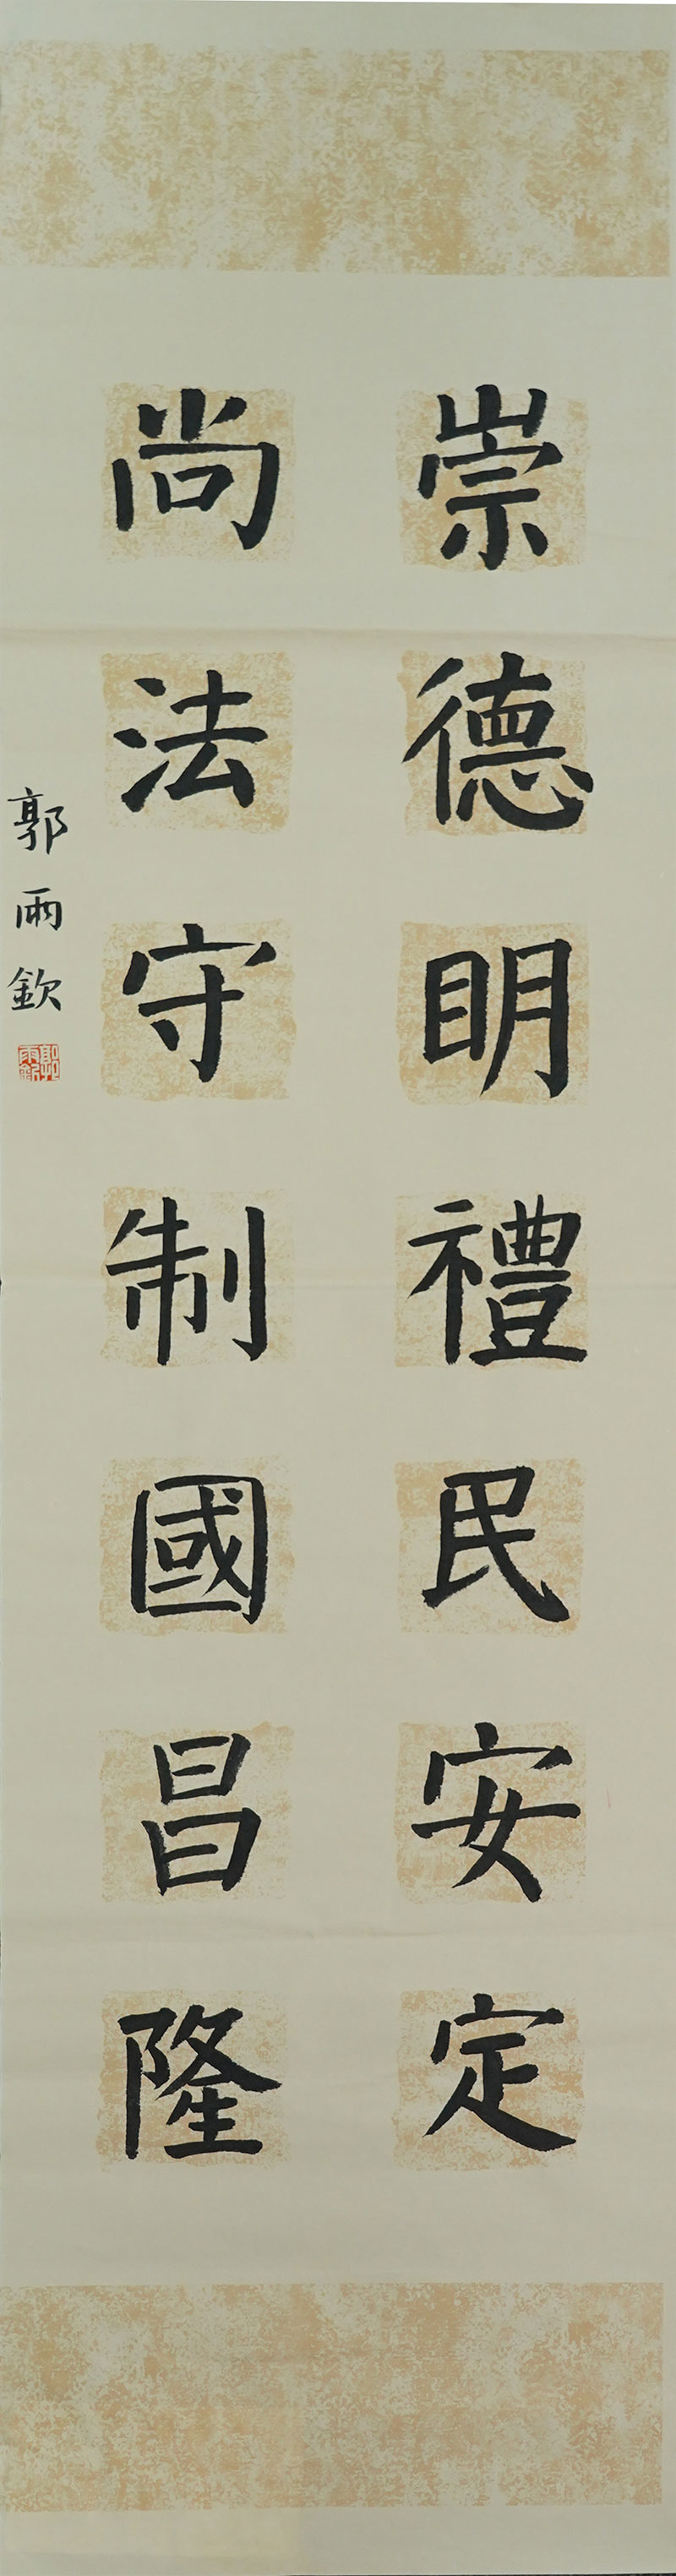 崇德明禮民安定
尚法守制國昌隆
郭雨欽
郭雨欽